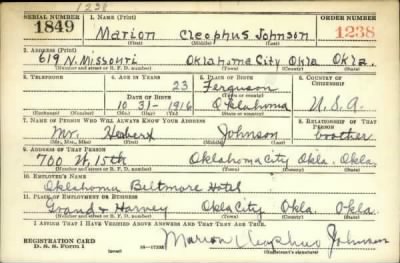 1238
SERIAL NUMBER 1. NAME (Print) ORDER NUMBER
1849 Marion Cleophus Johnson 1238
(First) (Middle) (Last)
2. ADDRESS (Print)
619 N. Missouri Oklahoma City Okla Okla.
(Number and street or R. F. D. number) (Town) (County) (State)
3. TELEPHONE 4. AGE IN YEARS 5. PLACE OF BIRTH 6. COUNTRY OF CITIZENSHIP
23 Ferguson
DATE OF BIRTH (Town or county)
10 31 - 1916 Oklahoma U.S.A.
(Exchange) (Number) (Mo.) (Day) (Yr.) (State or country)
7. NAME OF PERSON WHO WILL ALWAYS KNOW YOUR ADDRESS 8. RELATIONSHIP OF THAT PERSON
Mr. Herbert Johnson brother
(Mr., Mrs., Miss) (First) (Middle) (Last)
9. ADDRESS OF THAT PERSON
700 N. 15th Oklahoma City Okla. Okla.
(Number and street or R. F. D. number) (Town) (County) (State)
10. EMPLOYER'S NAME
Oklahoma Biltmore Hotel
11. PLACE OF EMPLOYMENT OR BUSINESS
Grand & Harvey Okla City Okla. Okla.
(Number and street or R. F. D. number) (Town) (County) (State)
I AFFIRM THAT I HAVE VERIFIED ABOVE ANSWERS AND THAT THEY ARE TRUE.
REGISTRATION CARD
D. S. S. Form 1 Marion Cleophus Johnson
(Registrant's signature)